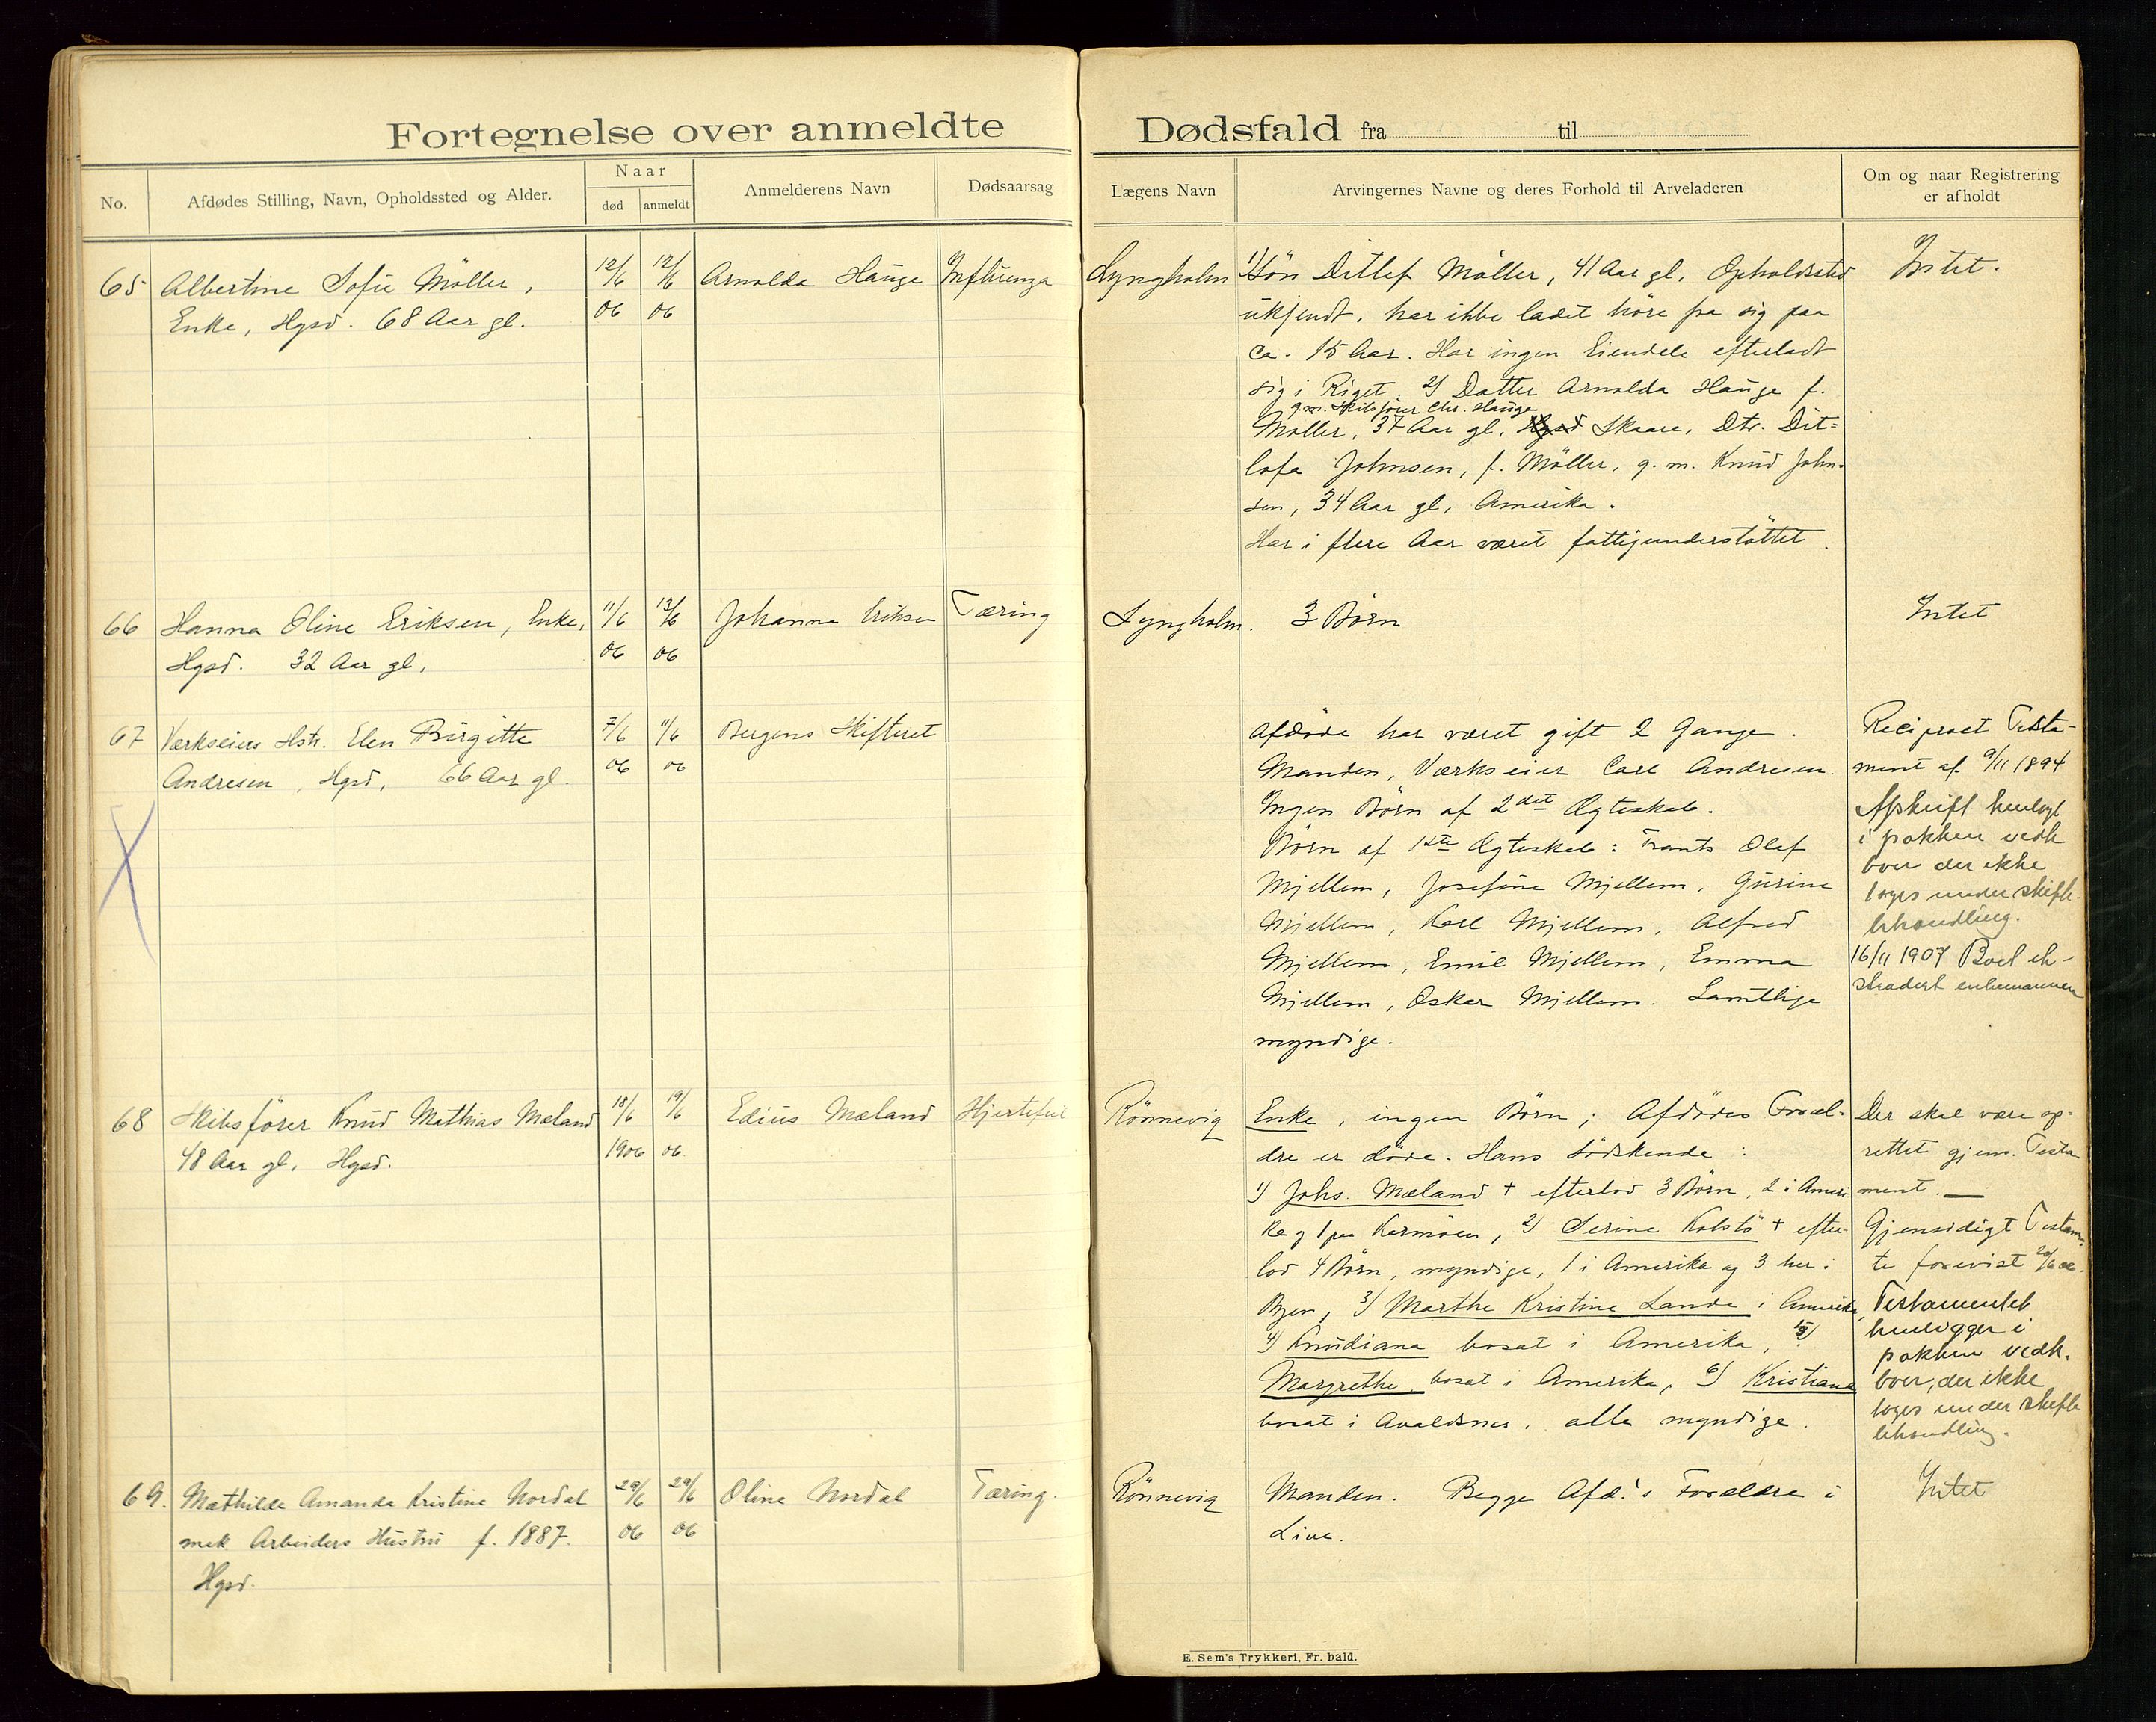 Fortegnelse over anmeldte Dødsfald fra til
No.
Afdødes Stilling, Navn, Opholdssted og Alder.
Naar
død
anmeldt
Anmelderens Navn
Dødsaarsag
Lægens Navn
Arvingernes Navne og deres Forhold til Arveladeren
Om og naar Registrering
er afholdt
65
Albertine Sofie Möller,
Enke, Hgsd. 68 Aar gl.
12/6
06
12/6
06
Arnolda Hauge
Influenza
Lyngholm
1) Sön Ditlef Möller, 41 Aar gl, Opholdssted
ukjendt, har ikke ladet höre fra sig paa
ca. 15 Aar. Har ingen Eiendele efterladt
sig i Riget. 2) Datter Arnolda Hauge f.
g.m. Skibsförer Chr. Hauge
Möller, 37 Aar gl, Hgsd Skaare, Dtr. Dit-
lofa Johnsen, f. Möller, g. m. Knud John-
sen, 34 Aar gl, Amerika.
Har i flere Aar været fattigunderstöttet.
Intet.
66
Hanna Oline Eriksen, Enke,
Hgsd. 32 Aar gl.
11/6
06
13/6
06
Johanna Eriksen
Tæring
Lyngholm.
3 Börn
Intet
67
Værkseiers Hstr. Elen Birgitte
Andresen, Hgsd, 66 Aar gl.
7/6
06
11/6
06
Bergens Skifteret
Afdöde har været gift 2 Gange.
Manden, Værkseier Carl Andresen.
Ingen Börn af 2det Ægteskab.
Börn af 1ste Ægteskab: Frants Olaf
Mjellem, Josefine Mjellem, Gurine
Mjellem, Karl Mjellem, Alfred
Mjellem, Emil Mjellem, Emma
Mjellem, Oskar Mjellem. Samtlige
myndige.
Reciproct Testa-
ment af 9/11 1894
Afskrift henlagt
i pakken vedk
boer der ikke
toges under skifte-
behandling.
16/11 1907 Boet ek-
stradert enkemannen
68
Skibsförer Knud Mathias Mæland
48 Aar gl, Hgsd.
18/6
1906
19/6
06.
Edius Mæland
Hjertefeil
Rönnevig
Enke, ingen Börn; Afdödes Foræl-
dre er döde. Hans Södskende:
1) Johs. Mæland + efterlod 3 Börn, 2 i Ameri
ka og 1 paa Karmöen, 2) Serine Kolstö + efter-
lod 4 Börn, myndige, 1 i Amerika og 3 her i
Byen, 3) Marthe Kristine Lande i Amerika,
4) Knudiana bosat i Amerika, 5)
Margrethe bosat i Amerika, 6) Kristiana
bosat i Avaldsnes. alle myndige.
Der skal være op-
rettet gjens. Testa-
ment.
Gjensidigt Testamen-
te forevist 20/6 06.
Testamentet
henligger i
pakken vedk.
boer, der ikke
toges under skifte
behandling.
69.
Mathilde Amanda Kristine Nordal
mek. Arbeiders Hustru f. 1887.
Hgsd.
29/6
06
29/6
06
Oline Nordal
Tæring.
Rönnevig
Manden. Begge Afd.'s Forældre i
Live.
Intet
E. Sem's Trykkeri, Fr. hald.